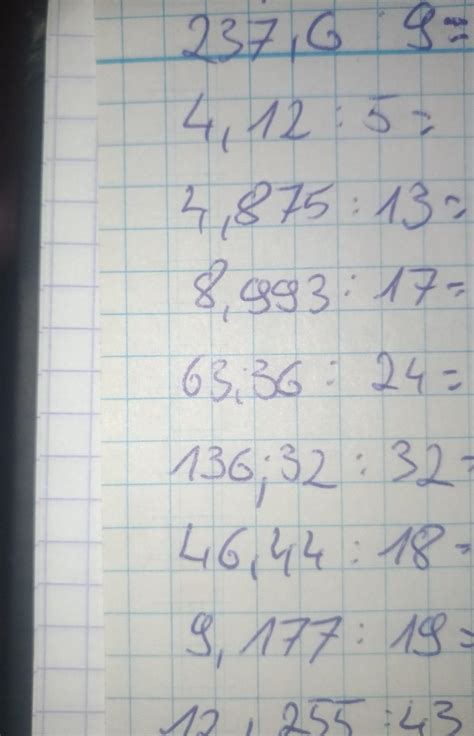 237,6 : 9=
4,12 : 5=
4,875 : 13=
8,993 : 17=
63,36 : 24=
136,32 : 32=
46,44 : 18=
9,177 : 19=
12,255 : 43